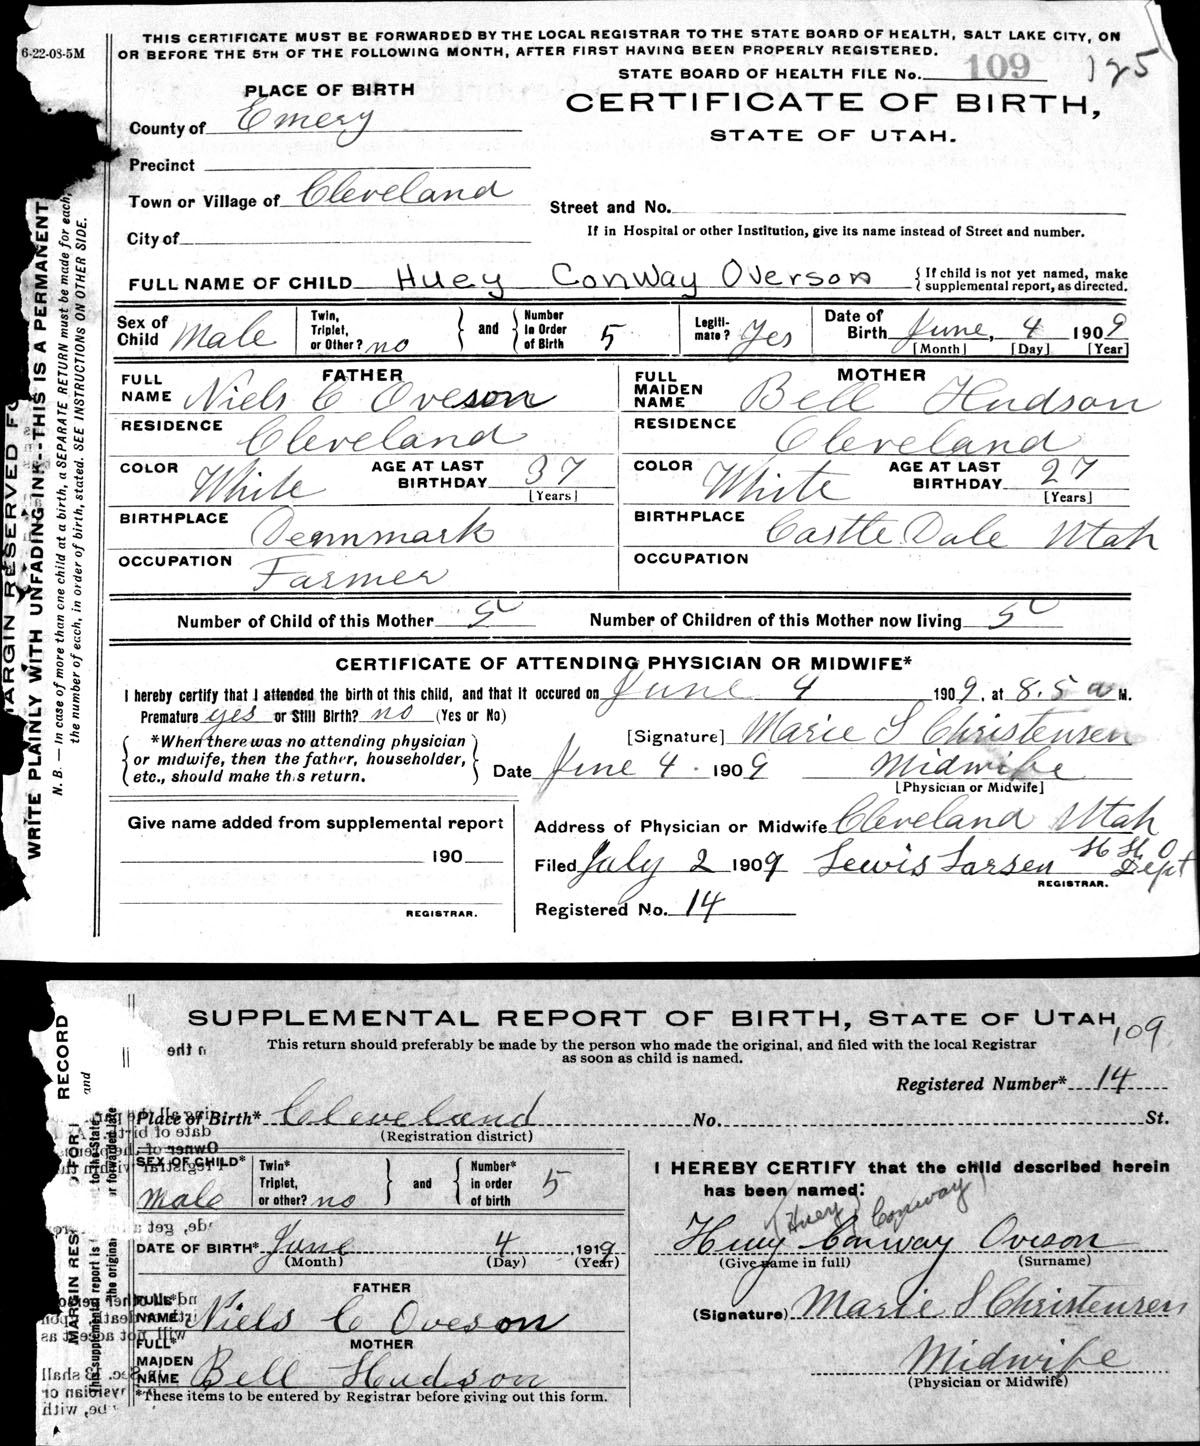 6-22-08-5M
THIS CERTIFICATE MUST BE FORWARDED BY THE LOCAL REGISTRAR TO THE STATE BOARD OF HEALTH, SALT LAKE CITY, ON
OR BEFORE THE 5TH OF THE FOLLOWING MONTH, AFTER FIRST HAVING BEEN PROPERLY REGISTERED.
STATE BOARD OF HEALTH FILE No. 109 125
PLACE OF BIRTH
CERTIFICATE OF BIRTH,
STATE OF UTAH.
County of Emery
Precinct
Town or Village of Cleveland
Street and No.
City of
If in Hospital or other Institution, give its name instead of Street and number.
FULL NAME OF CHILD Huey Conway Overson { If child is not yet named, make supplemental report, as directed.
Sex of Child Male Twin, Triplet, or Other? no } and { Number in Order of Birth 5 Legiti-mate? Yes Date of Birth June, 4 1909
[Month] [Day] [Year]
FATHER
FULL NAME Niels C Oveson
RESIDENCE Cleveland
COLOR White AGE AT LAST BIRTHDAY 37
[Years]
BIRTHPLACE Denmmark
OCCUPATION Farmer
MOTHER
FULL MAIDEN NAME Bell Hudson
RESIDENCE Cleveland
COLOR White AGE AT LAST BIRTHDAY 27
[Years]
BIRTHPLACE Castle Dale Utah
OCCUPATION
Number of Child of this Mother 5 Number of Children of this Mother now living 5
CERTIFICATE OF ATTENDING PHYSICIAN OR MIDWIFE*
I hereby certify that I attended the birth of this child, and that it occured on June 4 1909, at 8.5 a M.
Premature yes or Still Birth? no (Yes or No)
{ *When there was no attending physician
or midwife, then the father, householder,
etc., should make this return. }
[Signature] Marie S Christensen
Date June 4. 1909 Midwife
[Physician or Midwife]
Give name added from supplemental report
190
REGISTRAR.
Address of Physician or Midwife Cleveland Utah
Filed July 2 1909 Lewis Larsen Dept
REGISTRAR.
Registered No. 14
MARGIN RESERVED FO
WRITE PLAINLY WITH UNFADING INK--THIS IS A PERMANENT
N. B. — In case of more than one child at a birth, a SEPARATE RETURN must be made for each,
the number of each, in order of birth, stated. SEE INSTRUCTIONS ON OTHER SIDE.
SUPPLEMENTAL REPORT OF BIRTH, STATE OF UTAH
109
This return should preferably be made by the person who made the original, and filed with the local Registrar
as soon as child is named.
Registered Number* 14
Place of Birth* Cleveland No. St.
(Registration district)
SEX OF CHILD* Male Twin* Triplet, or other? no } and { Number* in order of birth 5
DATE OF BIRTH* June 4 1919
(Month) (Day) (Year)
FATHER
FULL* NAME Niels C Oveson
MOTHER
FULL* MAIDEN NAME Bell Hudson
*These items to be entered by Registrar before giving out this form.
I HEREBY CERTIFY that the child described herein
has been named:
(Huey Conway)
Huey Conway Oveson
(Give name in full) (Surname)
(Signature) Marie S Christensen
Midwife
(Physician or Midwife)
RECORD
and
MARGIN RES
This supplemental report is
to the State
the original
or forwarded late